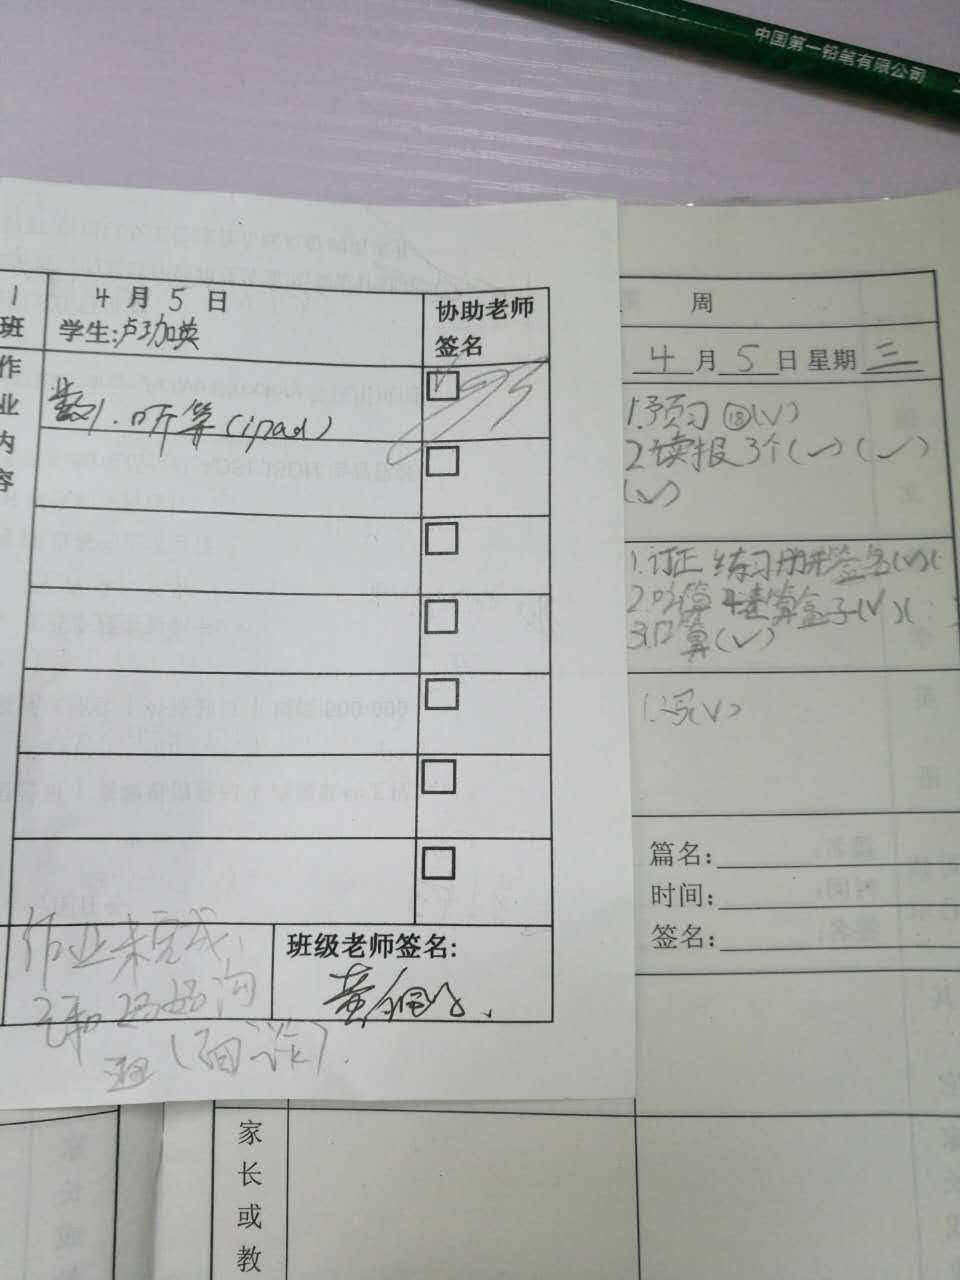 中国第一铅笔有限公司
1
班
4 月 5 日
学生:卢珈英
协助老师
签名
作
业
内
容
数1.听算(ipad)
作业未完成,
已和妈妈沟
通(面谈).
班级老师签名:
周
4 月 5 日 星期 三
1.预习 ⑱(√)
2.读报3个(√)(√)
(√)
1.订正 练习册并签名(√)(
2.听算 速算盒子(√)(
3.口算(√)
1.(√)
篇名:
时间:
签名:
家
长
或
教